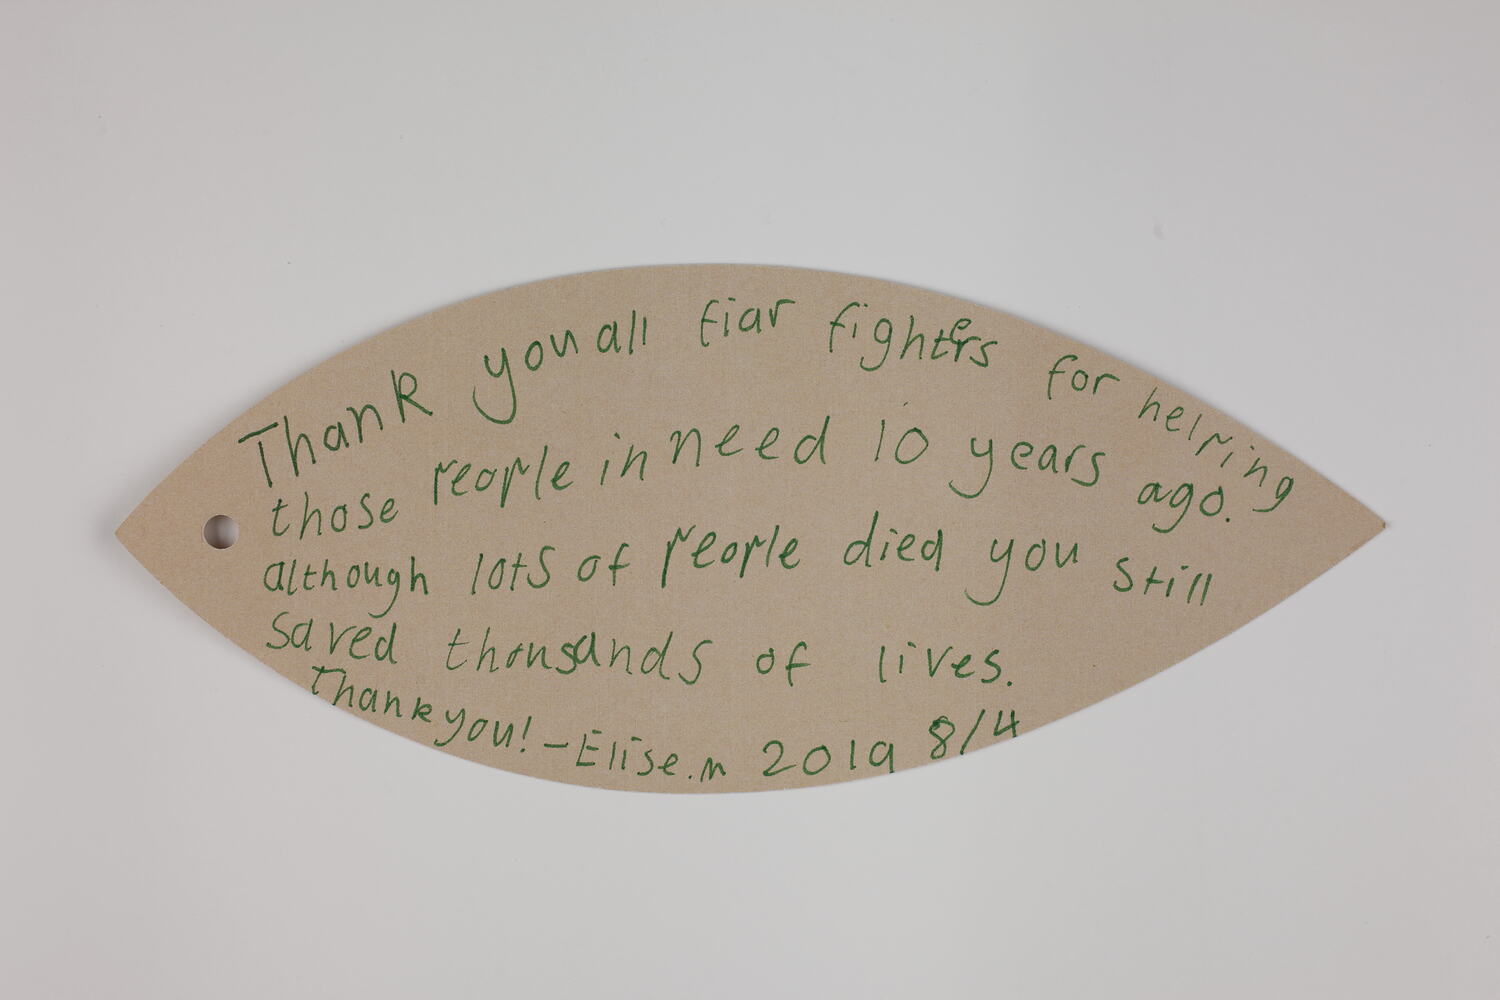 Thank you all fiar fighters for helping
those people in need 10 years ago.
although lots of people died you still
saved thousands of lives.
Thank you! - Elise.m 2019 8/4